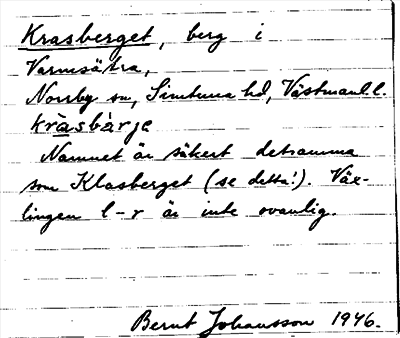 Krasberget, berg i
Varmsätra,
Norrby sn, Simtuna hd, Västmanl. l.
kràsbàrje
Namnet är säkert detsamma
som Klasberget (se detta!). Väx-
lingen l-r är inte ovanlig.
Bernt Johansson 1946.